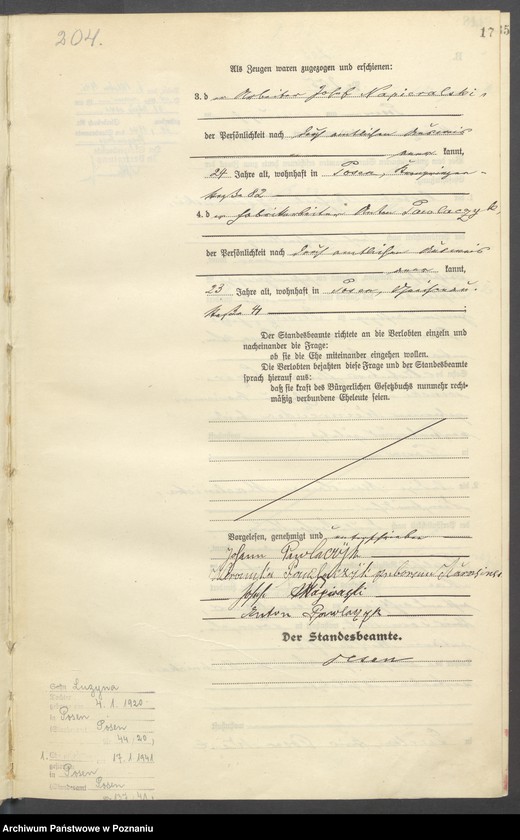 204.
17
35
Als Zeugen waren zugezogen und erschienen:
3. der Arbeiter Josef Napieralski,
der Persönlichkeit nach durch amtlichen Ausweis
aner kannt,
29 Jahre alt, wohnhaft in Posen, Kronprinzen-
straße 82
4. der Fabrikarbeiter Anton Pawlaczyk,
der Persönlichkeit nach durch amtlichen Ausweis
aner kannt,
23 Jahre alt, wohnhaft in Posen,
straße 41 ;
Der Standesbeamte richtete an die Verlobten einzeln und
nacheinander die Frage:
ob sie die Ehe miteinander eingehen wollen.
Die Verlobten bejahten diese Frage und der Standesbeamte
sprach hierauf aus:
daß sie kraft des Bürgerlichen Gesetzbuchs nunmehr recht-
mäßig verbundene Eheleute seien.
Vorgelesen, genehmigt und unterschrieben
Johann Pawlaczyk
Pawlaczyk geborene
Josef Napieralski
Anton Pawlaczyk
Der Standesbeamte.
Luzyna
4. 1. 1920
in Posen
Posen
44/20;
1.
17. 1. 1941
in Posen
Posen
137/41;
Archiwum Państwowe w Poznaniu